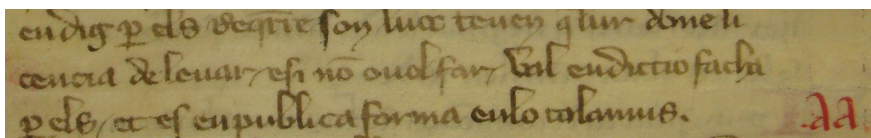 en dig p̱ els o eꝗ̄rre son luoc tenen q lur done li
cencia de leuar, e si nō o uol far, Val en dictio facha
p̱ els, et es en publica forma en lo tolamus. .AA